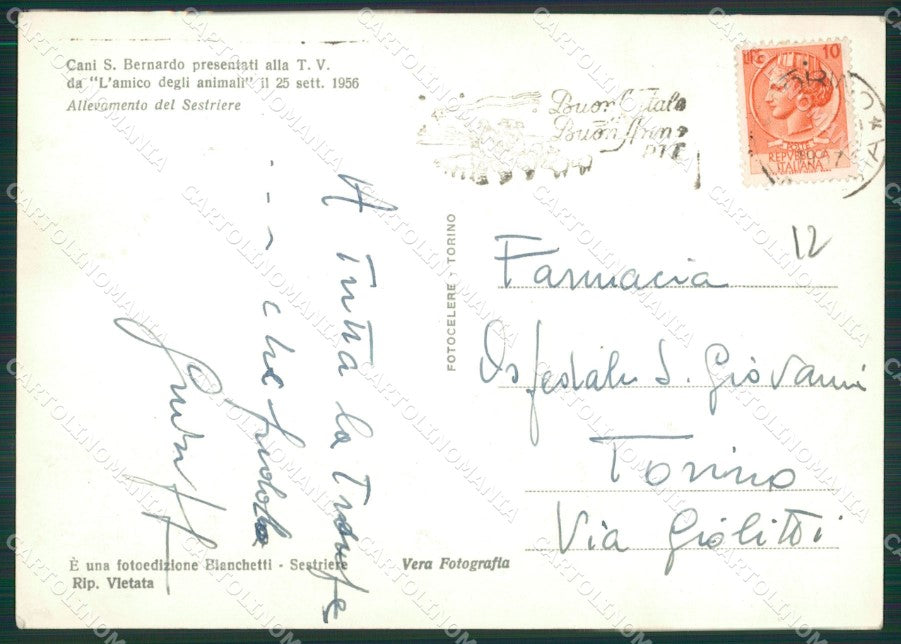 Cani S. Bernardo presentati alla T. V.
da "L'amico degli animali" il 25 sett. 1956
Allevamento del Sestriere
Buon Natale
Buon Anno
LIRE 10
POSTE
REPUBBLICA
ITALIANA
12
A Tutta la
- - - che
FOTOCELERE - TORINO
Farmacia
Ospedale S. Giovanni
Torino
Via Giolitti
È una fotoedizione Blanchetti - Sestriere
Rip. Vietata
Vera Fotografia
CARTOLINOMANIA